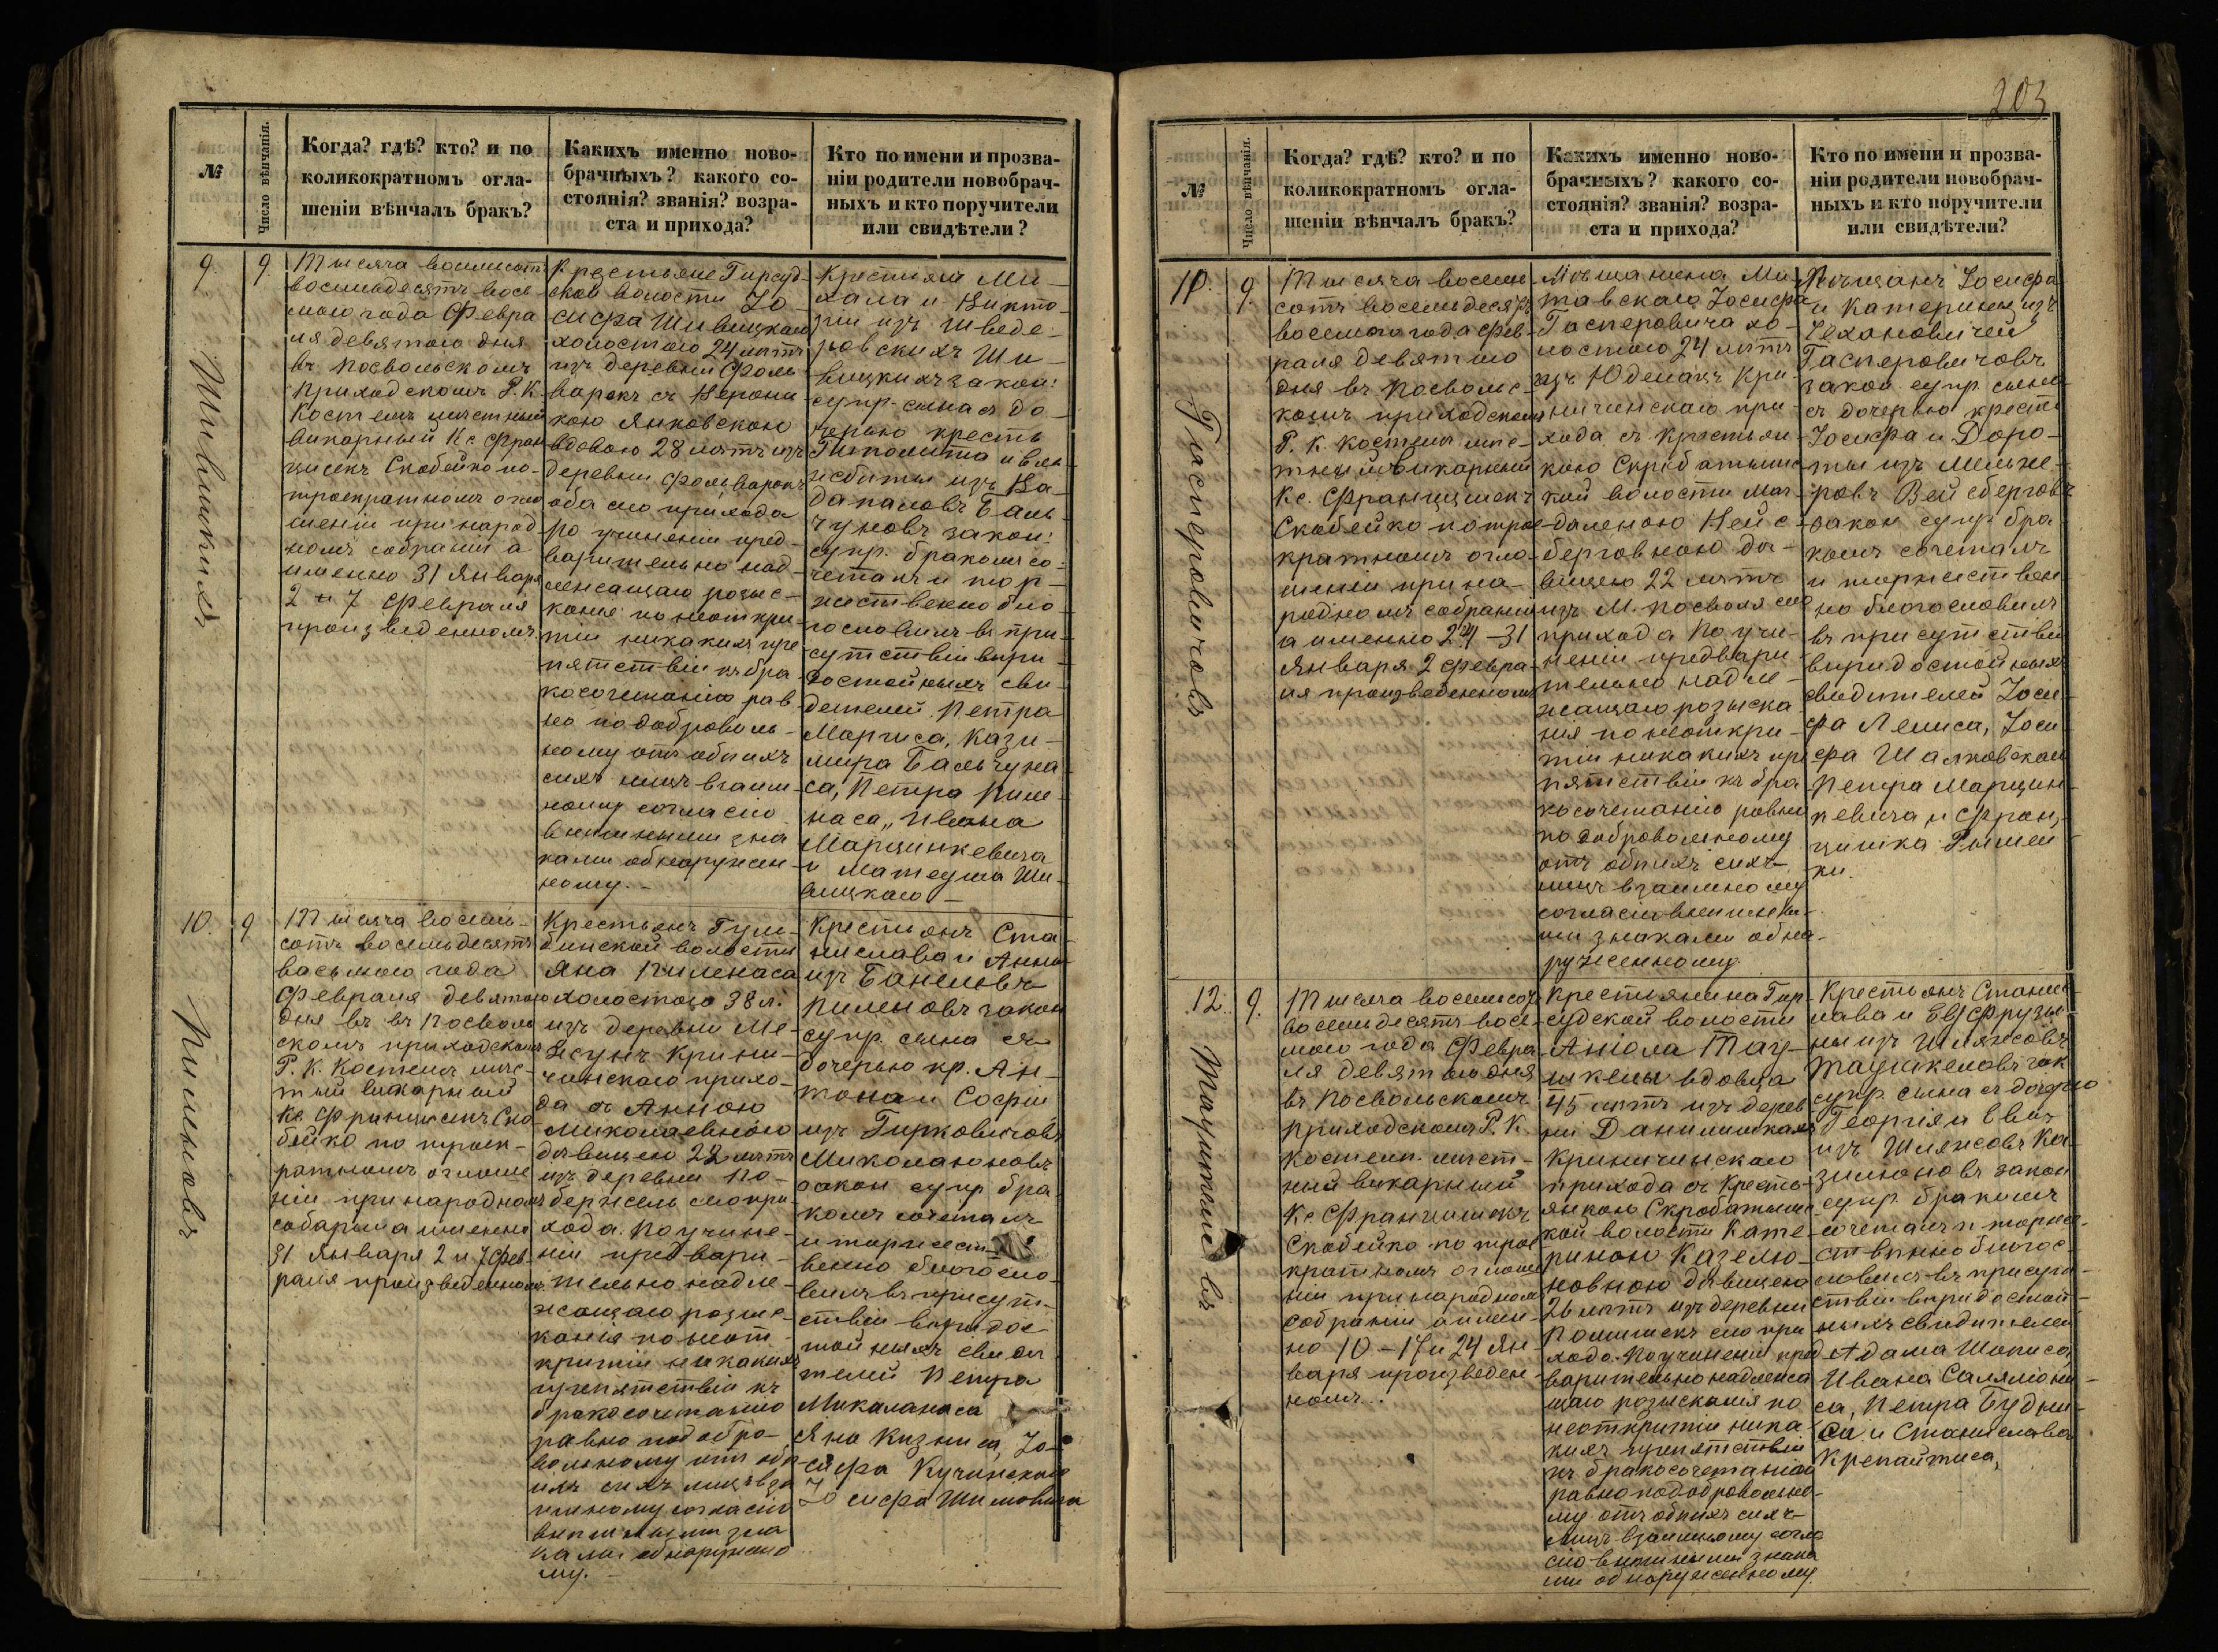 203
№
Число вѣнчанія.
Когда? гдѣ? кто? и по
коликократномъ огла-
шеніи вѣнчалъ бракъ?
Какихъ именно ново-
брачныхъ? какого со-
стоянія? званія? возра-
ста и прихода?
Кто по имени и прозва-
ніи родители новобрач-
ныхъ и кто поручители
или свидѣтели?
9.
9.
Тысяча восемьсотъ
восемьдесятъ вось
маго года Февра
ля девятаго дня
въ Посвольскомъ
приходскомъ Р. К.
Костелѣ мѣстный
викарный Кс Фран
цишекъ Скобейко по-
троекратномъ огла
шеніи при народ
номъ собраніи а
именно 31 Января
2 и 7 Февраля
произведенномъ
Крестьяне Гирсуд-
ской волости Іо-
сифа Шивицкаго
холостаго 24 лѣтъ
изъ деревни Фоль
варокъ съ Верони
кою Янковскою
вдовою 28 лѣтъ изъ
деревни Фольварокъ
оба сего прихода
по учиненіи пред-
варительно над-
лежащаго розыс-
канія по неоткры-
тіи никакихъ пре
пятствій къ бра
косочетанію рав
но по доброволь-
ному отъ обѣихъ
сихъ лицъ взаим-
ному согласію
внѣшними зна
ками обнаружен-
ному. -
Крестьянъ Ми-
хала и Викто-
ріи изъ Шведе-
ровскихъ Ши-
вицкихъ закон:
супр. сына съ до-
черью кресть
Гипполита и Ели-
забеты изъ Ва-
дапаловъ Баль-
чуновъ закон:
супр. бракомъ со-
четалъ и тор-
жественно бла-
гословилъ въ при-
сутствіи вѣро-
достойныхъ сви-
детелей Петра
Маргиса, Кази-
мира Бальчуна-
са, Петра Пиле-
наса, Ивана
Марцинкевича
и Матеуша Ши-
вицкаго -
10.
9
Тысяча восемь-
сотъ восемьдесятъ
васьмаго года
Февраля девятаго
дня въ въ Посволь
скомъ приходскомъ
Р. К. Костелѣ мѣс-
тный викарный
Кс Францишекъ Ско
бейко по троек-
ратномъ оглаше
ніи при народномъ
собраніи а именно
31 Января 2 и 7 Фев-
раля произведенномъ
Крестьянъ Гули-
бинской волости
Яна Пиленаса
холостаго 38 л.
изъ деревни Ме-
жунъ Крини-
чинскаго прихо-
да съ Анною
Миколаевною
дѣвицею 22 лѣтъ
изъ деревни По-
бержель сего при
хода. По учине-
ніи предвари-
тельно надле-
жащаго розыс-
канія по неот-
крытіи никакихъ
препятствій къ
бракосочетанію
равно по добро-
вольному отъ обѣ
ихъ сихъ лицъ вза
имному согласію
внѣшними зна
ками обнаружено
му.
Крестьянъ Ста-
нислава и Анны
изъ Банеловъ
Пиленовъ закон
супр. сына съ
дочерью кр. Ан-
тона и Софіи
изъ Гирковичовъ
Миколаюновъ
закон супр бра-
комъ сочеталъ
и торжест-
венно благосло-
вилъ въ присут-
ствіи вѣродос-
тойныхъ свидѣ
телей Петра
Микаланаса
Яна Кизниса, Іо-
сифа Кучинскаго
Іосифа Шимовича
Шивицкихъ
Пиленовъ
№
Число вѣнчанія.
Когда? гдѣ? кто? и по
коликократномъ огла-
шеніи вѣнчалъ бракъ?
Какихъ именно ново-
брачныхъ? какого со-
стоянія? званія? возра-
ста и прихода?
Кто по имени и прозва-
ніи родители новобрач-
ныхъ и кто поручители
или свидѣтели?
11.
9.
Гасперовичовъ
Тысяча восемь
сотъ восемьдесятъ
восемаго года Фев-
раля девятаго
дня въ Посвольс-
комъ приходскомъ
Р. К. Костелѣ мѣс-
тный викарный
Кс. Францишекъ
Скобейко по трое-
кратномъ огла-
шеніи при на-
родномъ собраніи
а именно 24-31
Января 2 Февра-
ля произведенномъ
Мѣщанина Ми
тавскаго Іосифа
Гасперовича хо-
лостаго 24 лѣтъ
изъ Юделанъ Кри-
ничинскаго при-
хода съ крестьян
кою Скробатышс-
кой волости Маг-
даленою Вейс-
берговною дѣ-
вицею 22 лѣтъ
изъ М. Посволя сего
прихода По учи-
неніи предвари-
тельно надле-
жащаго розыска
нія по неоткры-
тіи никакихъ пре
пятствій къ бра
косочетанію равно
по добровольному
отъ обѣихъ сихъ
лицъ взаимному
согласію внѣшны-
ми знаками обна-
руженному.
Мѣщанъ Іосифа
и Катерины изъ
Чехановичей
Гасперовичовъ
закон. супр. сына
съ дочерью крест.
Іосифа и Доро-
ты изъ Мельне-
ровъ Вейсберговъ
закон супр бра
комъ сочеталъ
и торжествен
но благословилъ
въ присутствіи
вѣродостойныхъ
свидетелей Іоси-
фа Лениса, Іоси
фа Шалковскаго
Петра Марцин
кевича и Фран-
цишка Рымей
ки.
12.
9.
Таушкеновъ
Тысяча восемьсот
восемьдесятъ вось-
маго года Февра
ля девятаго дня
въ Посвольскомъ
приходскомъ Р. К.
костелѣ мѣст-
ный викарный
Кс Францишекъ
Скобейко по трое
кратномъ оглаше
ніи при народномъ
собраніи а имен-
но 10-17 и 24 Ян-
варя произведен-
номъ.
Крестьянина Гир-
судской волости
Антона Тау-
шкены вдовца
45 лѣтъ изъ дерев
ни Данилишкахъ
Криничинскаго
прихода съ кресть-
янкою Скробатышс
кой волости Кате-
риною Казелю-
новною дѣвицею
26 лѣтъ изъ деревни
сего при
хода. По учиненіи пред
варительно надлежа
щаго розысканія по
неоткрытіи ника
кихъ препятствій
къ бракосочетанію
равно по добровольно-
му отъ обѣихъ сихъ
лицъ взаимному согла
сію внѣшними знака
ми обнаруженному.
Крестьянъ Станис-
лава и Евфрузы-
ны изъ Шляжсовъ
Таушкеновъ зак
супр. сына съ дочерью
Георгія и Евы
изъ Шляжсовъ Ка-
зилюновъ закон
супр. бракомъ
сочеталъ и торже-
ственно благос-
ловилъ въ присут-
ствіи вѣродостой-
ныхъ свидѣтелей
Адама Шописа,
Ивана Салялюна-
са, Петра Будри-
са и Станислава
Крепайтиса,